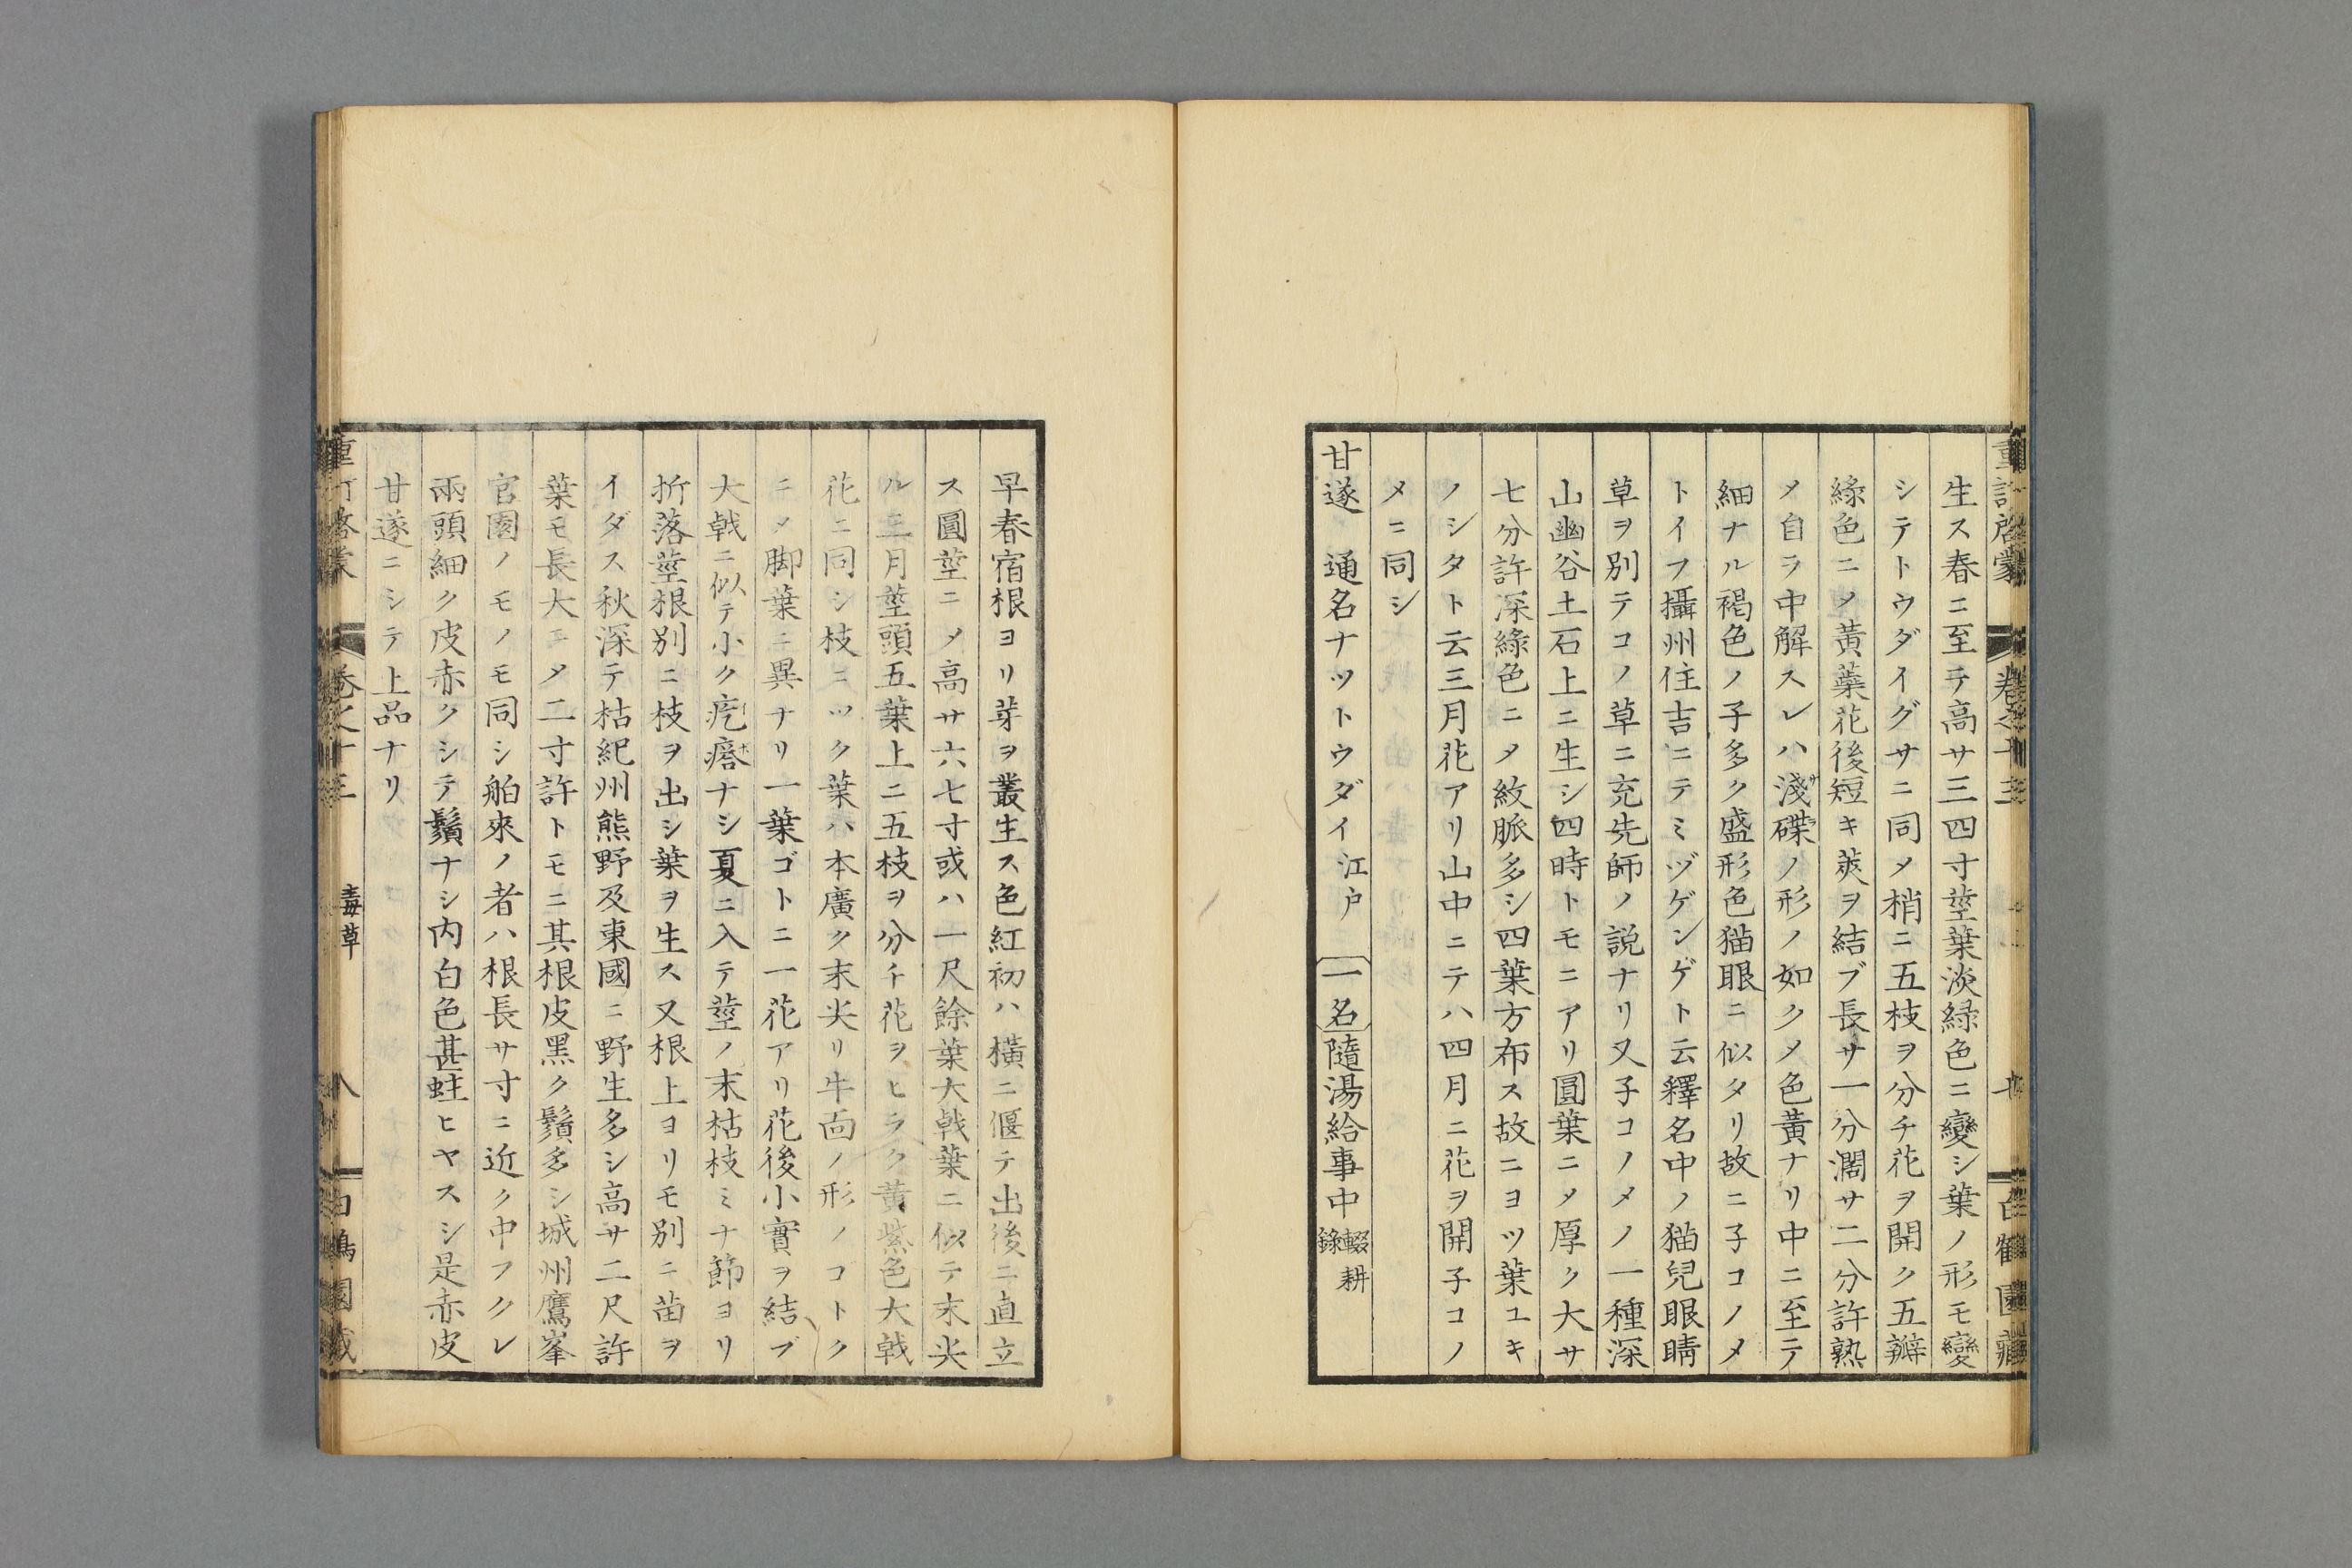 生ス春ニ至テ高サ三四寸莖葉淡緑色ニ變シ葉ノ形モ變
シテトウダイグサニ同〆梢ニ五枝ヲ分チ花ヲ開ク五瓣
緑色ニ〆黃蘂花後短キ莢ヲ結ブ長サ一分濶サ二分許熟
〆自ラ中解スレハ淺碟ノ形ノ如ク〆色黃ナリ中ニ至テ
細ナル褐色ノ子多ク盛形色猫眼ニ似タリ故ニ子コノメ
トイフ攝州住吉ニテミヅゲンゲト云釋名中ノ猫兒眼睛
草ヲ別テコノ草ニ充先師ノ説ナリ又子コノメノ一種深
山幽谷土石上ニ生シ四時トモニアリ圓葉ニ〆厚ク大サ
七分許深綠色ニ〆紋脈多シ四葉方布ス故ニヨツ葉ユキ
ノシタト云三月花アリ山中ニテハ四月ニ花ヲ開子コノ
メニ同シ
甘遂 通名ナツトウダイ江戸 一名 隨湯給事中 輟耕錄
早春宿根ヨリ芽ヲ叢生ス色紅初ハ橫ニ偃テ出後ニ直立
ス圓莖ニ〆高サ六七寸或ハ一尺餘葉大戟葉ニ似テ末尖
ル三月莖頭五葉上ニ五枝ヲ分チ花ヲヒラク黃紫色大戟
花ニ同シ枝ニツク葉ハ本廣ク末尖リ牛面ノ形ノコトク
ニ〆脚葉ニ異ナリ一葉ゴトニ一花アリ花後小實ヲ結ブ
大戟ニ似テ小ク疙瘩ナシ夏ニ入テ莖ノ末枯枝ミナ節ヨリ
折落莖根別ニ枝ヲ出シ葉ヲ生ス又根上ヨリモ別ニ苗ヲ
イダス秋深テ枯紀州熊野及東國ニ野生多シ高サ二尺許
葉モ長大ニ〆二寸許トモニ其根皮黑ク鬚多シ城州鷹峯
官園ノモノモ同シ舶來ノ者ハ根長サ寸ニ近ク中フクレ
兩頭細ク皮赤クシテ鬚ナシ内白色甚蛀ヒヤスシ是赤皮
甘遂ニシテ上品ナリ
卷之十三 毒草 八